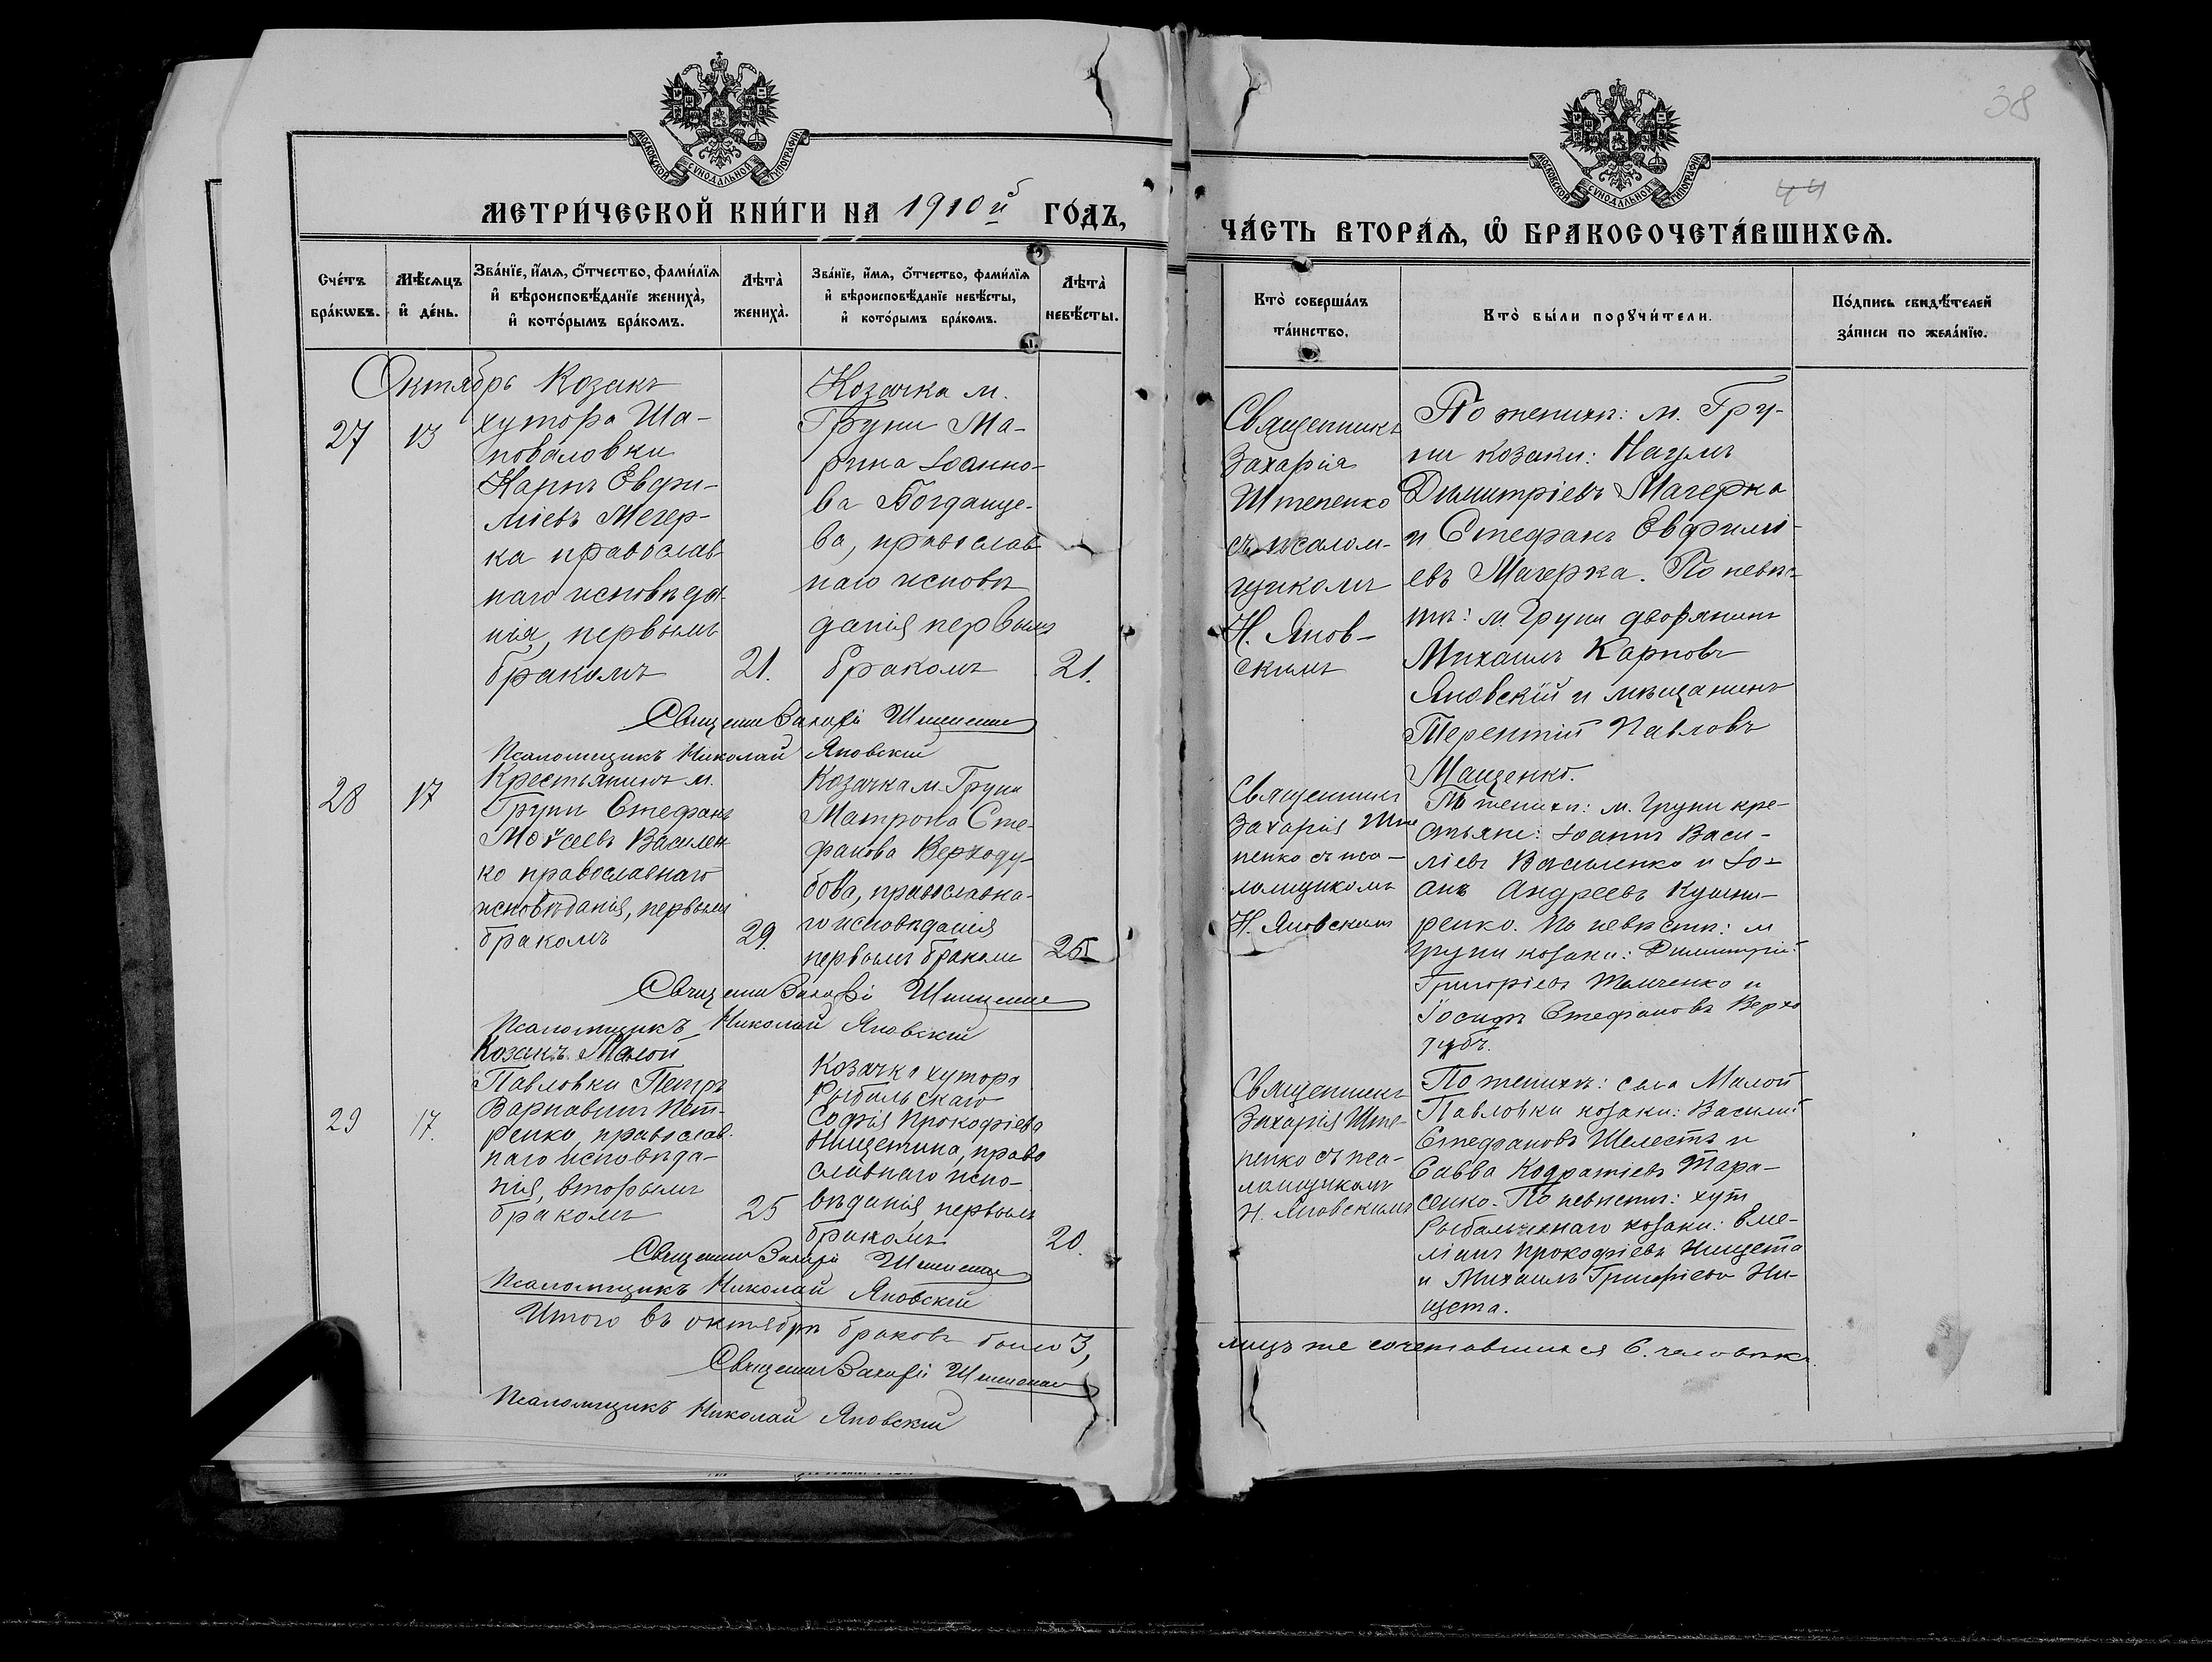 МОСКОВСКОЙ СѴНОДАЛЬНОЙ ТИПОГРАФІИ
МЕТРИ́ЧЕСКОЙ КНИ́ГИ НА 1910й ГО́ДЪ,
Сче́тъ бра́кѡвъ.
Мѣ́сѧцъ и҆ де́нь.
Зва́нїе, и҆́мѧ, ѻ҆́тчество, фами́лїѧ
и҆ вѣроисповѣ́данїе жениха̀,
и҆ кото́рымъ бра́комъ.
Лѣта̀ жениха̀.
Зва́нїе, и҆́мѧ, ѻ҆́тчество, фами́лїѧ
и҆ вѣроисповѣ́данїе невѣ́сты,
и҆ кото́рымъ бра́комъ.
Лѣта̀ невѣ́сты.
Октябрь
27
13
Козакъ
хутора Ша-
поваловки
Карпъ Евфи-
міевъ Мачер-
ка православ
наго исповѣда-
нія, первымъ
бракомъ
21.
Козачка м.
Груни Ма-
рина Іоанно-
ва Богданце-
ва, православ
наго исповѣ
данія первымъ
бракомъ
21.
Священ Захарій Штепенко
Псаломщикъ Николай Яновскій
28
17
Крестьянинъ м.
Груни Стефанъ
Моѵсеевъ Василен
ко православнаго
исповѣданія, первымъ
бракомъ
29.
Козачка м. Груни
Матрона Сте-
фанова Верходу-
бова, православна-
го исповѣданія
первымъ бракомъ
25
Священ Захарій Штепенко
Псаломщикъ Николай Яновскій
29
17.
Козакъ Малой
Павловки Петръ
Варнавинъ Пет-
ренко, православ-
наго исповѣда-
нія, вторымъ
бракомъ
25
Козачка хутора
Рыбальскаго
Софія Прокофіева
Нищетина, право
славнаго испо-
вѣданія первымъ
бракомъ
20.
Священ Захарій Штепенко
Псаломщикъ Николай Яновскій
Итого въ октябрѣ браковъ было 3,
Священ Захарій Штепенко
Псаломщикъ Николай Яновскій
38
МОСКОВСКОЙ СѴНОДАЛЬНОЙ ТИПОГРАФІИ
44
ЧА́СТЬ ВТОРА́Ѧ, Ѡ҆ БРАКОСОЧЕТА́ВШИХСѦ.
Кто̀ соверша́лъ
та́инство.
Кто̀ бы́ли порꙋчи́тели.
По́дпись свидѣ́телей
за́писи по жела́нїю.
Священникъ
Захарія
Штепенко
съ псалом-
щикомъ
Н. Янов-
скимъ
По женихѣ: м. Гру-
ни козаки: Наумъ
Димитріевъ Мачерка
и Стефанъ Евфимі-
евъ Мачерка. По невѣс-
тѣ: м. Груни дворянинъ
Михаилъ Карповъ
Яновскій и мѣщанинъ
Терентій Павловъ
Мащенко.
Священникъ
Захарія Ште
пенко съ пса-
ломщикомъ
Н. Яновскимъ
По женихѣ: м. Груни кре-
стьяне: Іоаннъ Васи-
ліевъ Василенко и Іо-
анъ Андреевъ Кушни-
ренко. По невѣстѣ: м
Груни козаки: Димитрій
Григоріевъ Темченко и
Іосифъ Стефановъ Верхо
дубъ.
Священникъ
Захарія Ште-
пенко съ пса-
ломщикомъ
Н. Яновскимъ
По женихѣ: села Малой
Павловки козаки: Василій
Стефановъ Шелестъ и
Савва Кодратіевъ Тара-
сенко. По невѣстѣ: хут
Рыбальскаго козаки: Еме-
ліанъ Прокофіевъ Нищета
и Михаилъ Григоріевъ Ни-
щета.
лицъ же сочетавшихся 6. человѣкъ.